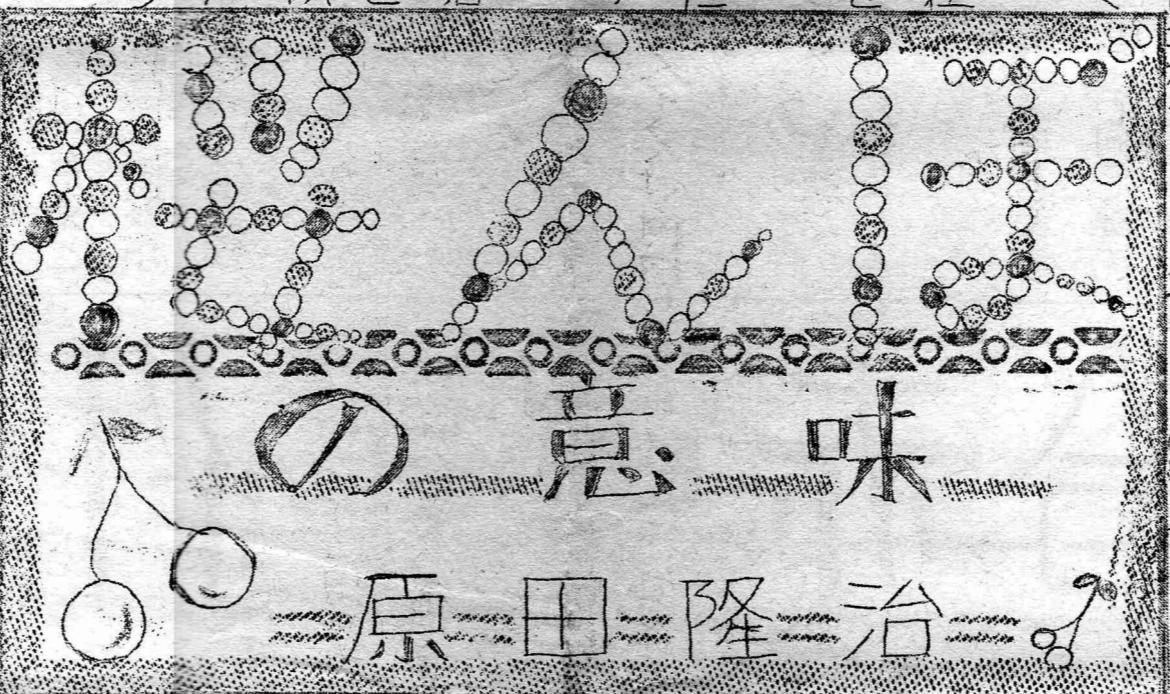 桜んぼ
の意味
原田隆治